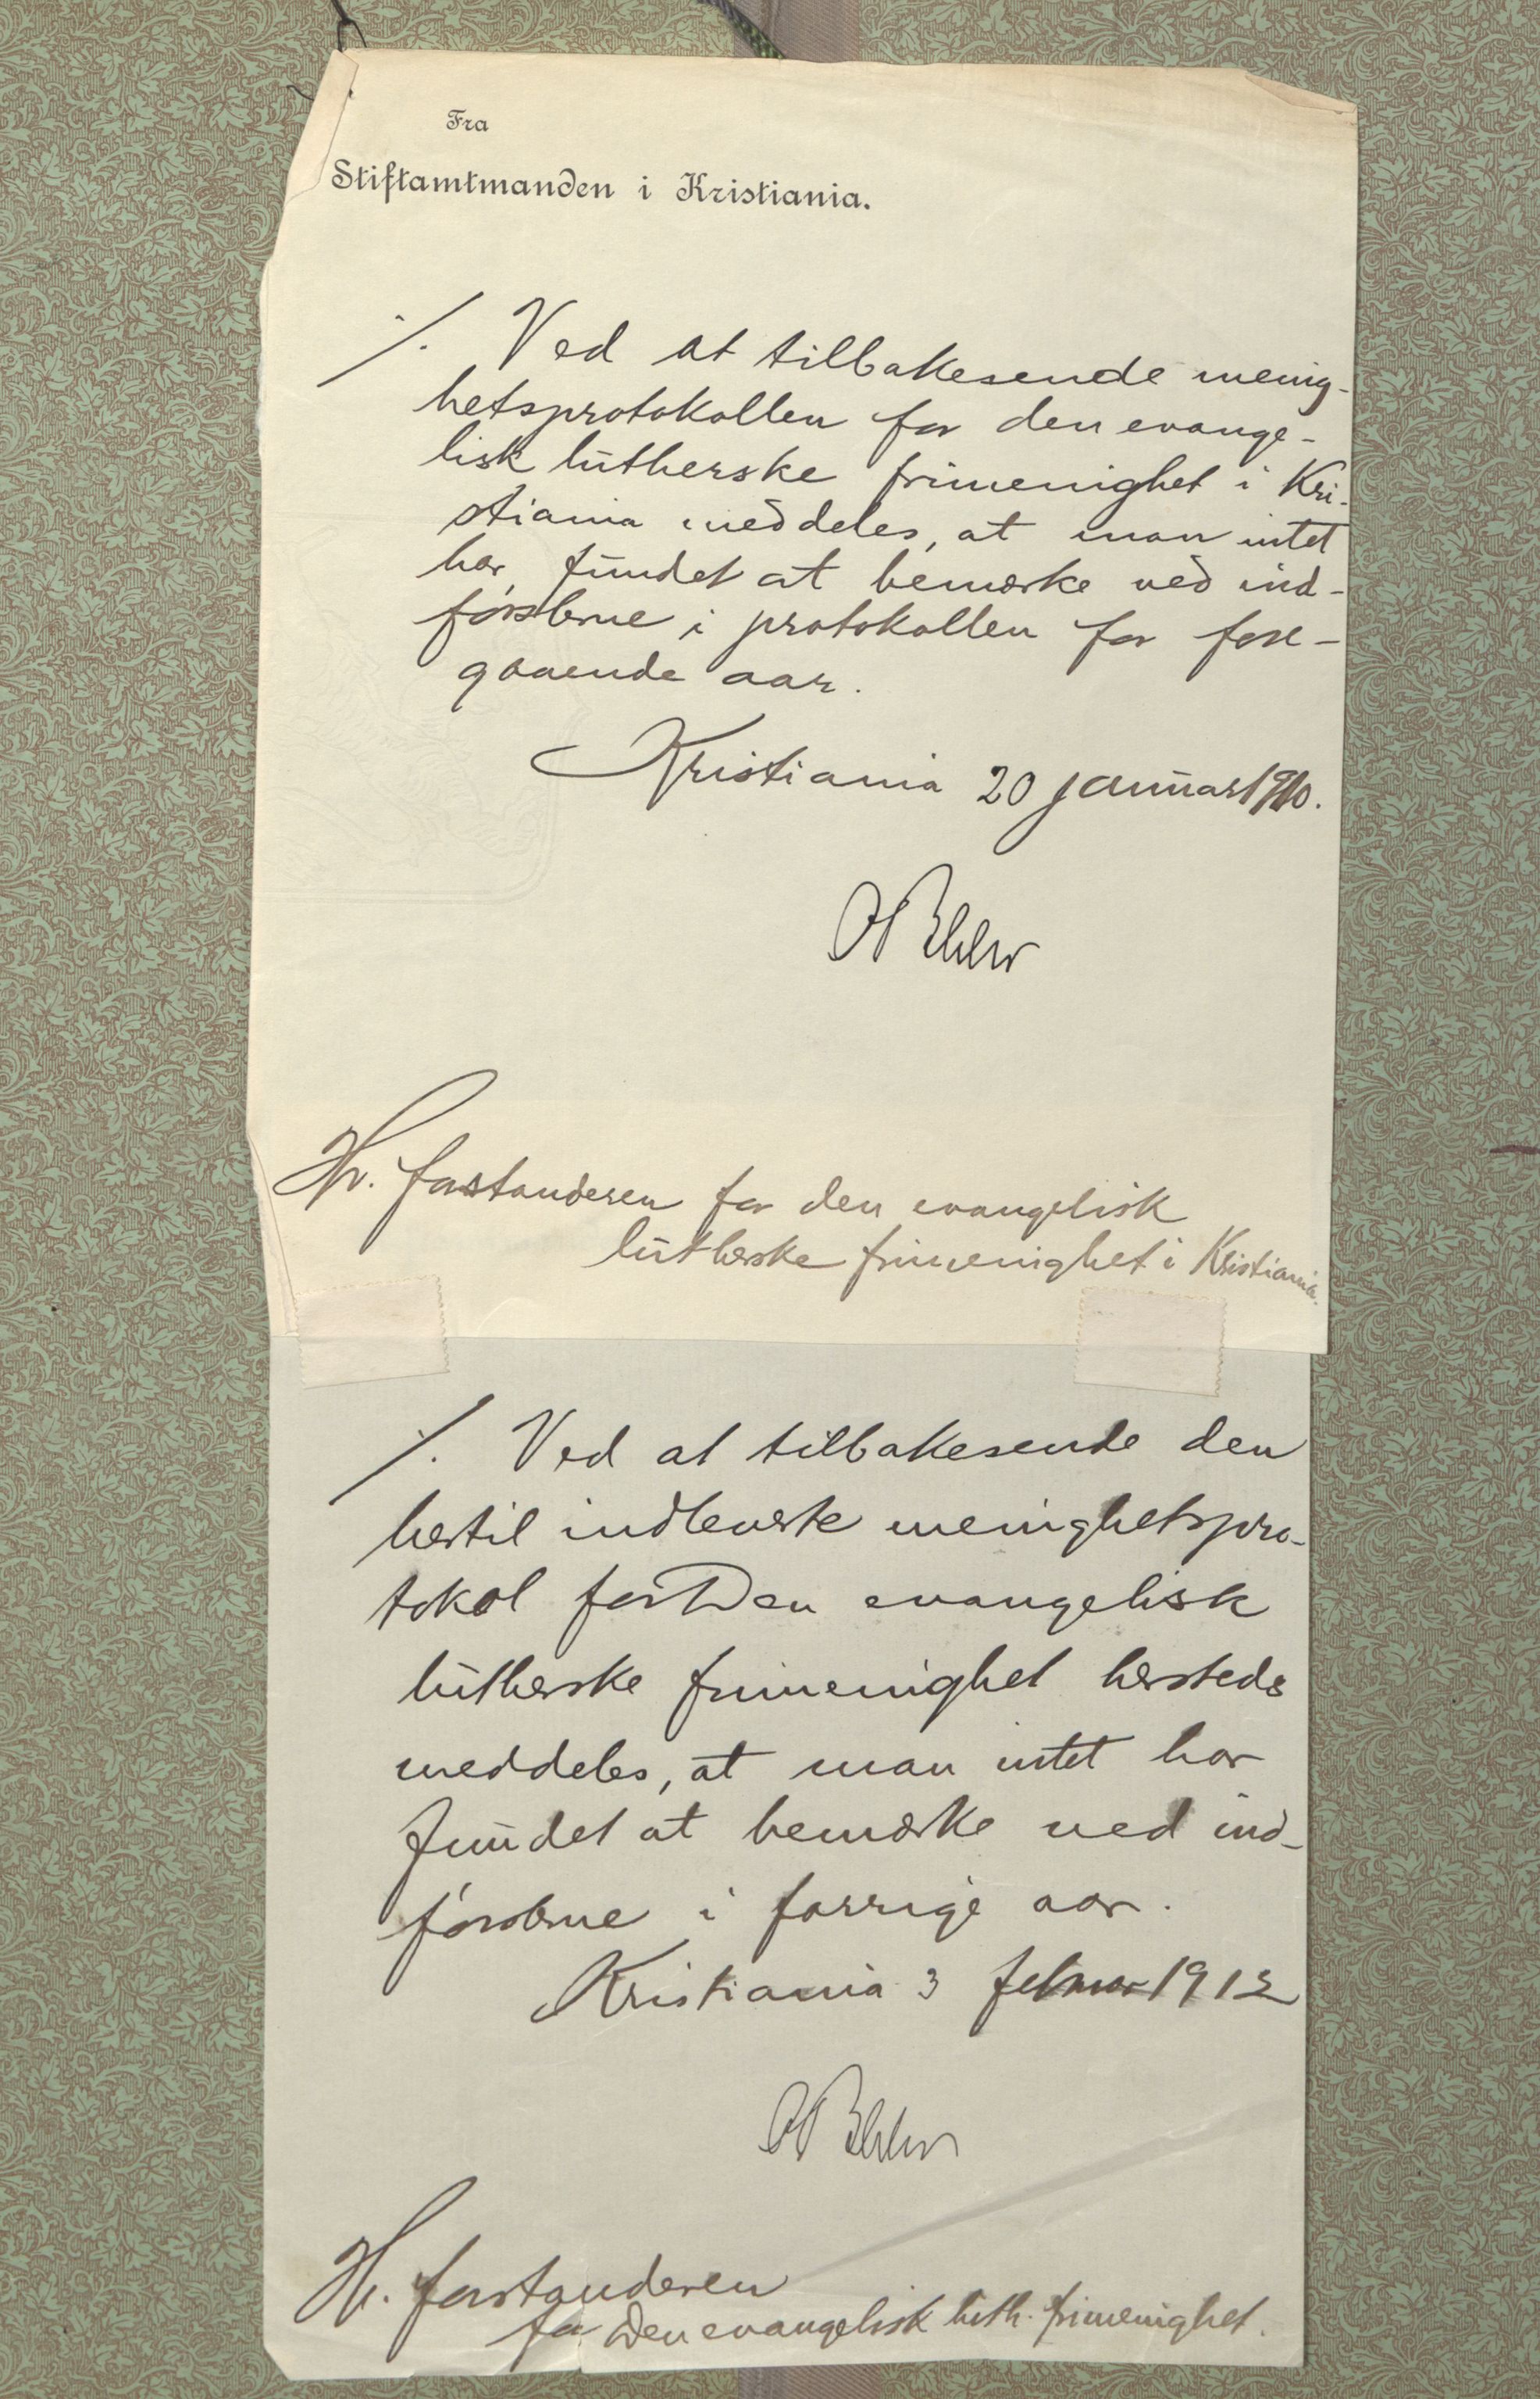 Fra
Stiftamtmanden i Kristiania.
./. Ved at tilbakesende menig-
hetsprotokollen for den evange-
lisk lutherske frimenighet i Kri-
stiania meddeles, at man intet
har fundet at bemerke ved ind-
førslerne i protokollen for fore-
gaaende aar.
Kristiania 20 januar 1910.
Hr. forstanderen for den evangelisk
lutherske frimenighet i Kristiania.
./. Ved at tilbakesende den
hertil indleverte menighetspro-
tokol for Den evangelisk
lutherske frimenighet hersteds
meddeles, at man intet har
fundet at bemerke ved ind-
førslerne i forrige aar.
Kristiania 3 februar 1912
Hr. forstanderen
for Den evangelisk luth. frimenighet.